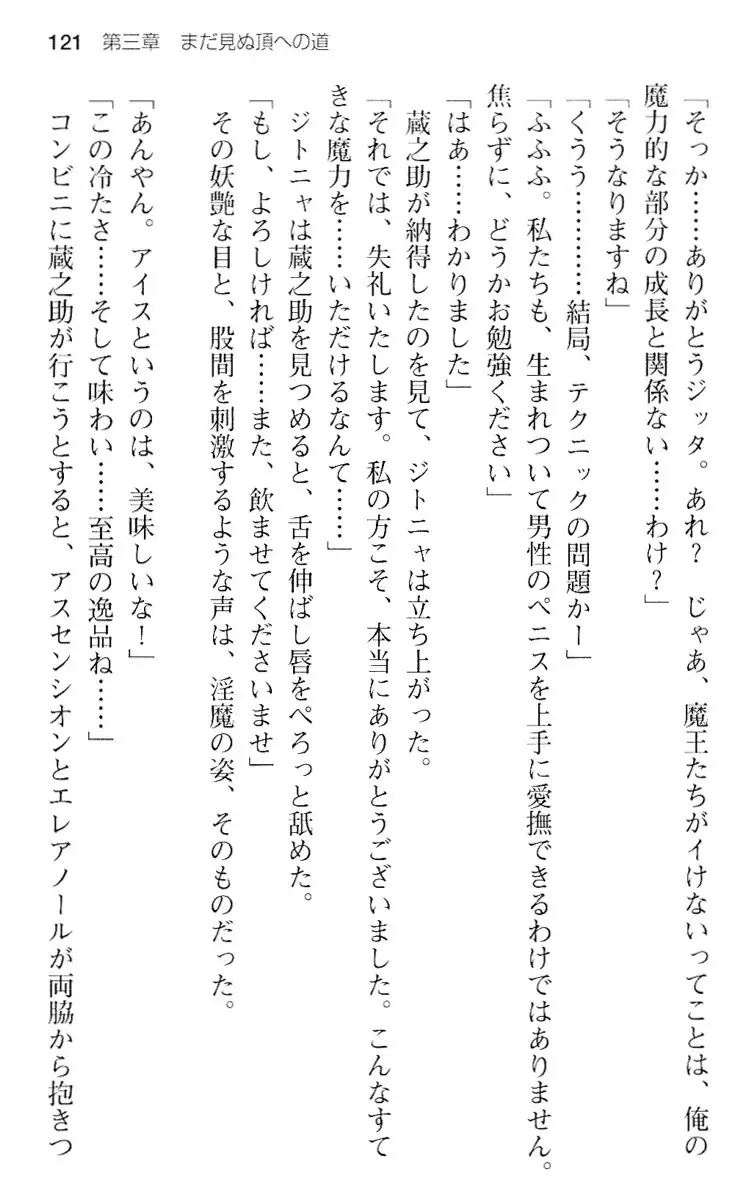 121　第三章　まだ見ぬ頂への道
「そっか……ありがとうジッタ。あれ？　じゃあ、魔王たちがイけないってことは、俺の
魔力的な部分の成長と関係ない……わけ？」
「そうなりますね」
「くうう…………結局、テクニックの問題かー」
「ふふふ。私たちも、生まれついて男性のペニスを上手に愛撫できるわけではありません。
焦らずに、どうかお勉強ください」
「はあ……わかりました」
　蔵之助が納得したのを見て、ジトニャは立ち上がった。
「それでは、失礼いたします。私の方こそ、本当にありがとうございました。こんなすて
きな魔力を……いただけるなんて……」
　ジトニャは蔵之助を見つめると、舌を伸ばし唇をぺろっと舐めた。
「もし、よろしければ……また、飲ませてくださいませ」
　その妖艶な目と、股間を刺激するような声は、淫魔の姿、そのものだった。
「あんやん。アイスというのは、美味しいな！」
「この冷たさ……そして味わい……至高の逸品ね……」
　コンビニに蔵之助が行こうとすると、アスセンシオンとエレアノールが両脇から抱きつ